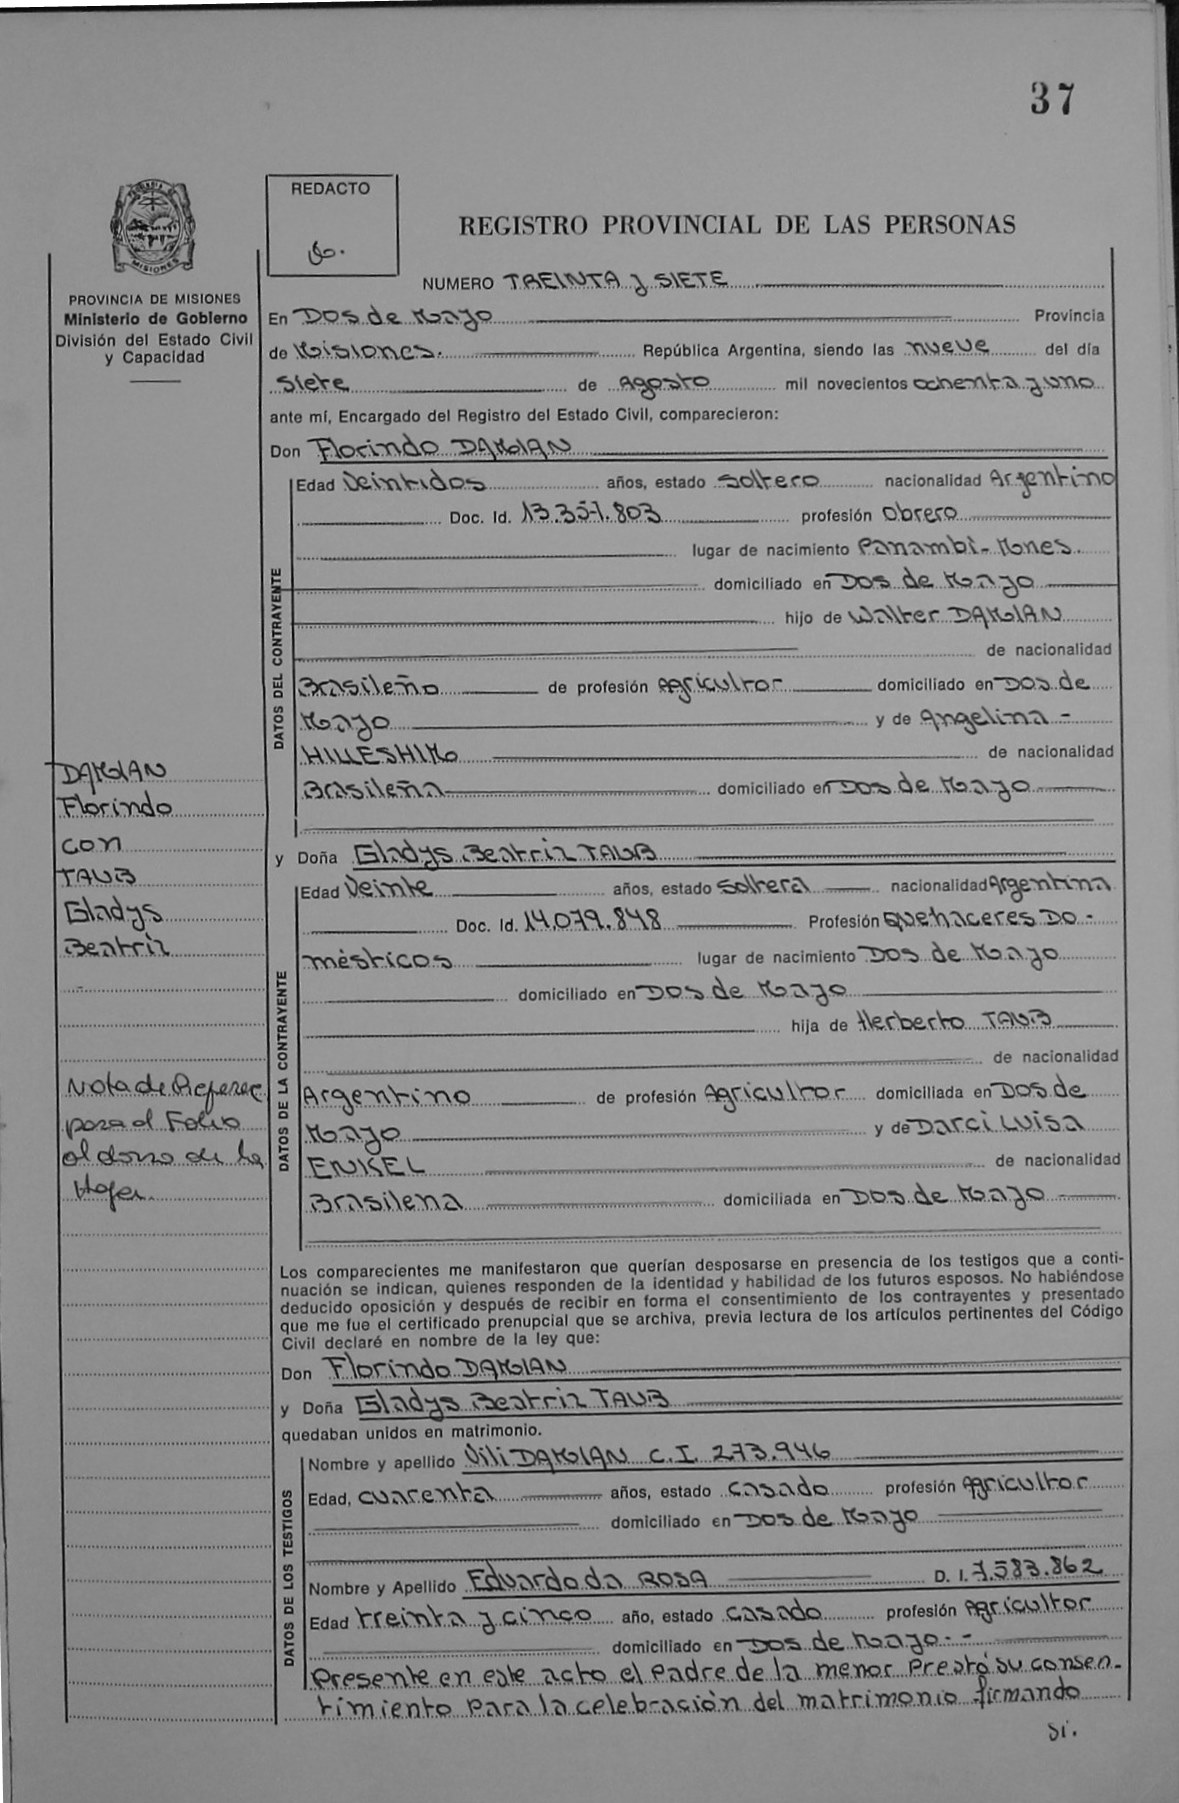 37
REDACTO
REGISTRO PROVINCIAL DE LAS PERSONAS
MISIONES
PROVINCIA DE MISIONES
Ministerio de Gobierno
División del Estado Civil
y Capacidad
NUMERO TREINTA y SIETE
En Dos de Mayo Provincia
de Misiones. República Argentina, siendo las nueve del día
Siete de Agosto mil novecientos ochenta y uno
ante mí, Encargado del Registro del Estado Civil, comparecieron:
Don Florindo DAMIAN
DATOS DEL CONTRAYENTE
Edad Veintidos años, estado Soltero nacionalidad Argentino
Doc. Id. 13.357.803 profesión Obrero
lugar de nacimiento Panambi-Mnes.
domiciliado en Dos de Mayo
hijo de Walter DAMIAN
de nacionalidad
Brasileño de profesión Agricultor domiciliado en Dos de
Mayo y de Angelina -
HILLESHIM de nacionalidad
Brasileña domiciliado en Dos de Mayo
DAMIAN
Florindo
con
TAUB
Gladys
Beatriz
y Doña Gladys Beatriz TAUB
DATOS DE LA CONTRAYENTE
Edad Veinte años, estado Soltera nacionalidad Argentina
Doc. Id. 14.079.848 Profesión Quehaceres DO-
mésticos lugar de nacimiento Dos de Mayo
domiciliado en Dos de Mayo
hija de Herberto TAUB
de nacionalidad
Argentino de profesión Agricultor domiciliada en Dos de
Mayo y de Darci Luisa
ENKEL de nacionalidad
Brasilena domiciliada en Dos de Mayo
Nota de Referenc
para el Folio
al dorso de la
Hoja.
Los comparecientes me manifestaron que querían desposarse en presencia de los testigos que a conti-
nuación se indican, quienes responden de la identidad y habilidad de los futuros esposos. No habiéndose
deducido oposición y después de recibir en forma el consentimiento de los contrayentes y presentado
que me fue el certificado prenupcial que se archiva, previa lectura de los artículos pertinentes del Código
Civil declaré en nombre de la ley que:
Don Florindo DAMIAN
y Doña Gladys Beatriz TAUB
quedaban unidos en matrimonio.
DATOS DE LOS TESTIGOS
Nombre y apellido Vili DAMIAN C.I. 273.946
Edad, cuarenta años, estado casado profesión Agricultor
domiciliado en Dos de Mayo
Nombre y Apellido Eduardo da ROSA D. I. 7.583.862
Edad treinta y cinco año, estado casado profesión Agricultor
domiciliado en Dos de Mayo.--
Presente en este acto el Padre de la menor Prestó su consen-
timiento para la celebración del matrimonio firmando
si.